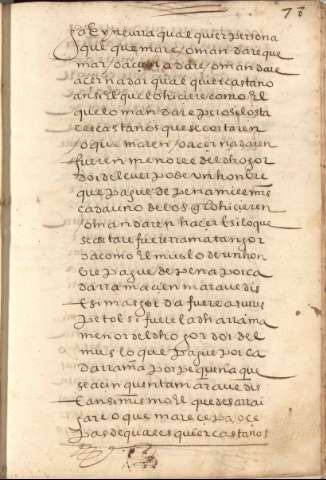 78
qualquier persona
que que mare o mandare que
mar o acernadar o mandare
acernadar qualquier castaño
ansi el que lo hiciere como el
que lo mandare pero si los ta
les castaños que se cortaren
o que maren o acernadaren
fueren menores del dho gor
dor del cuerpo de un honbre
que pague de pena mill mrs
cada uno de los que lo hicieren
o mandaren hacer e si lo que
se cortare fuere rrama tan gor
da como el muslo de un hon
bre pague de pena por ca
da rrama cien maravedis
e si mas gorda fuere a su rres
peto e si fuere la dha rrama
menor del dho gordor del
muslo que pague por ca
da rrama por pequeña que
sea cinquenta maravedis
e ansimismo el que desarrai
gare o que mare cepa o ce
pas de qualesquier castaños